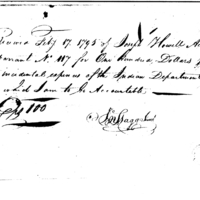 Received Feby 17. 1795 of Joseph Howell
Warrant No 117 for One Hundred Dollars for
incidental expences of the Indian Department
which I am to be Accountable
100